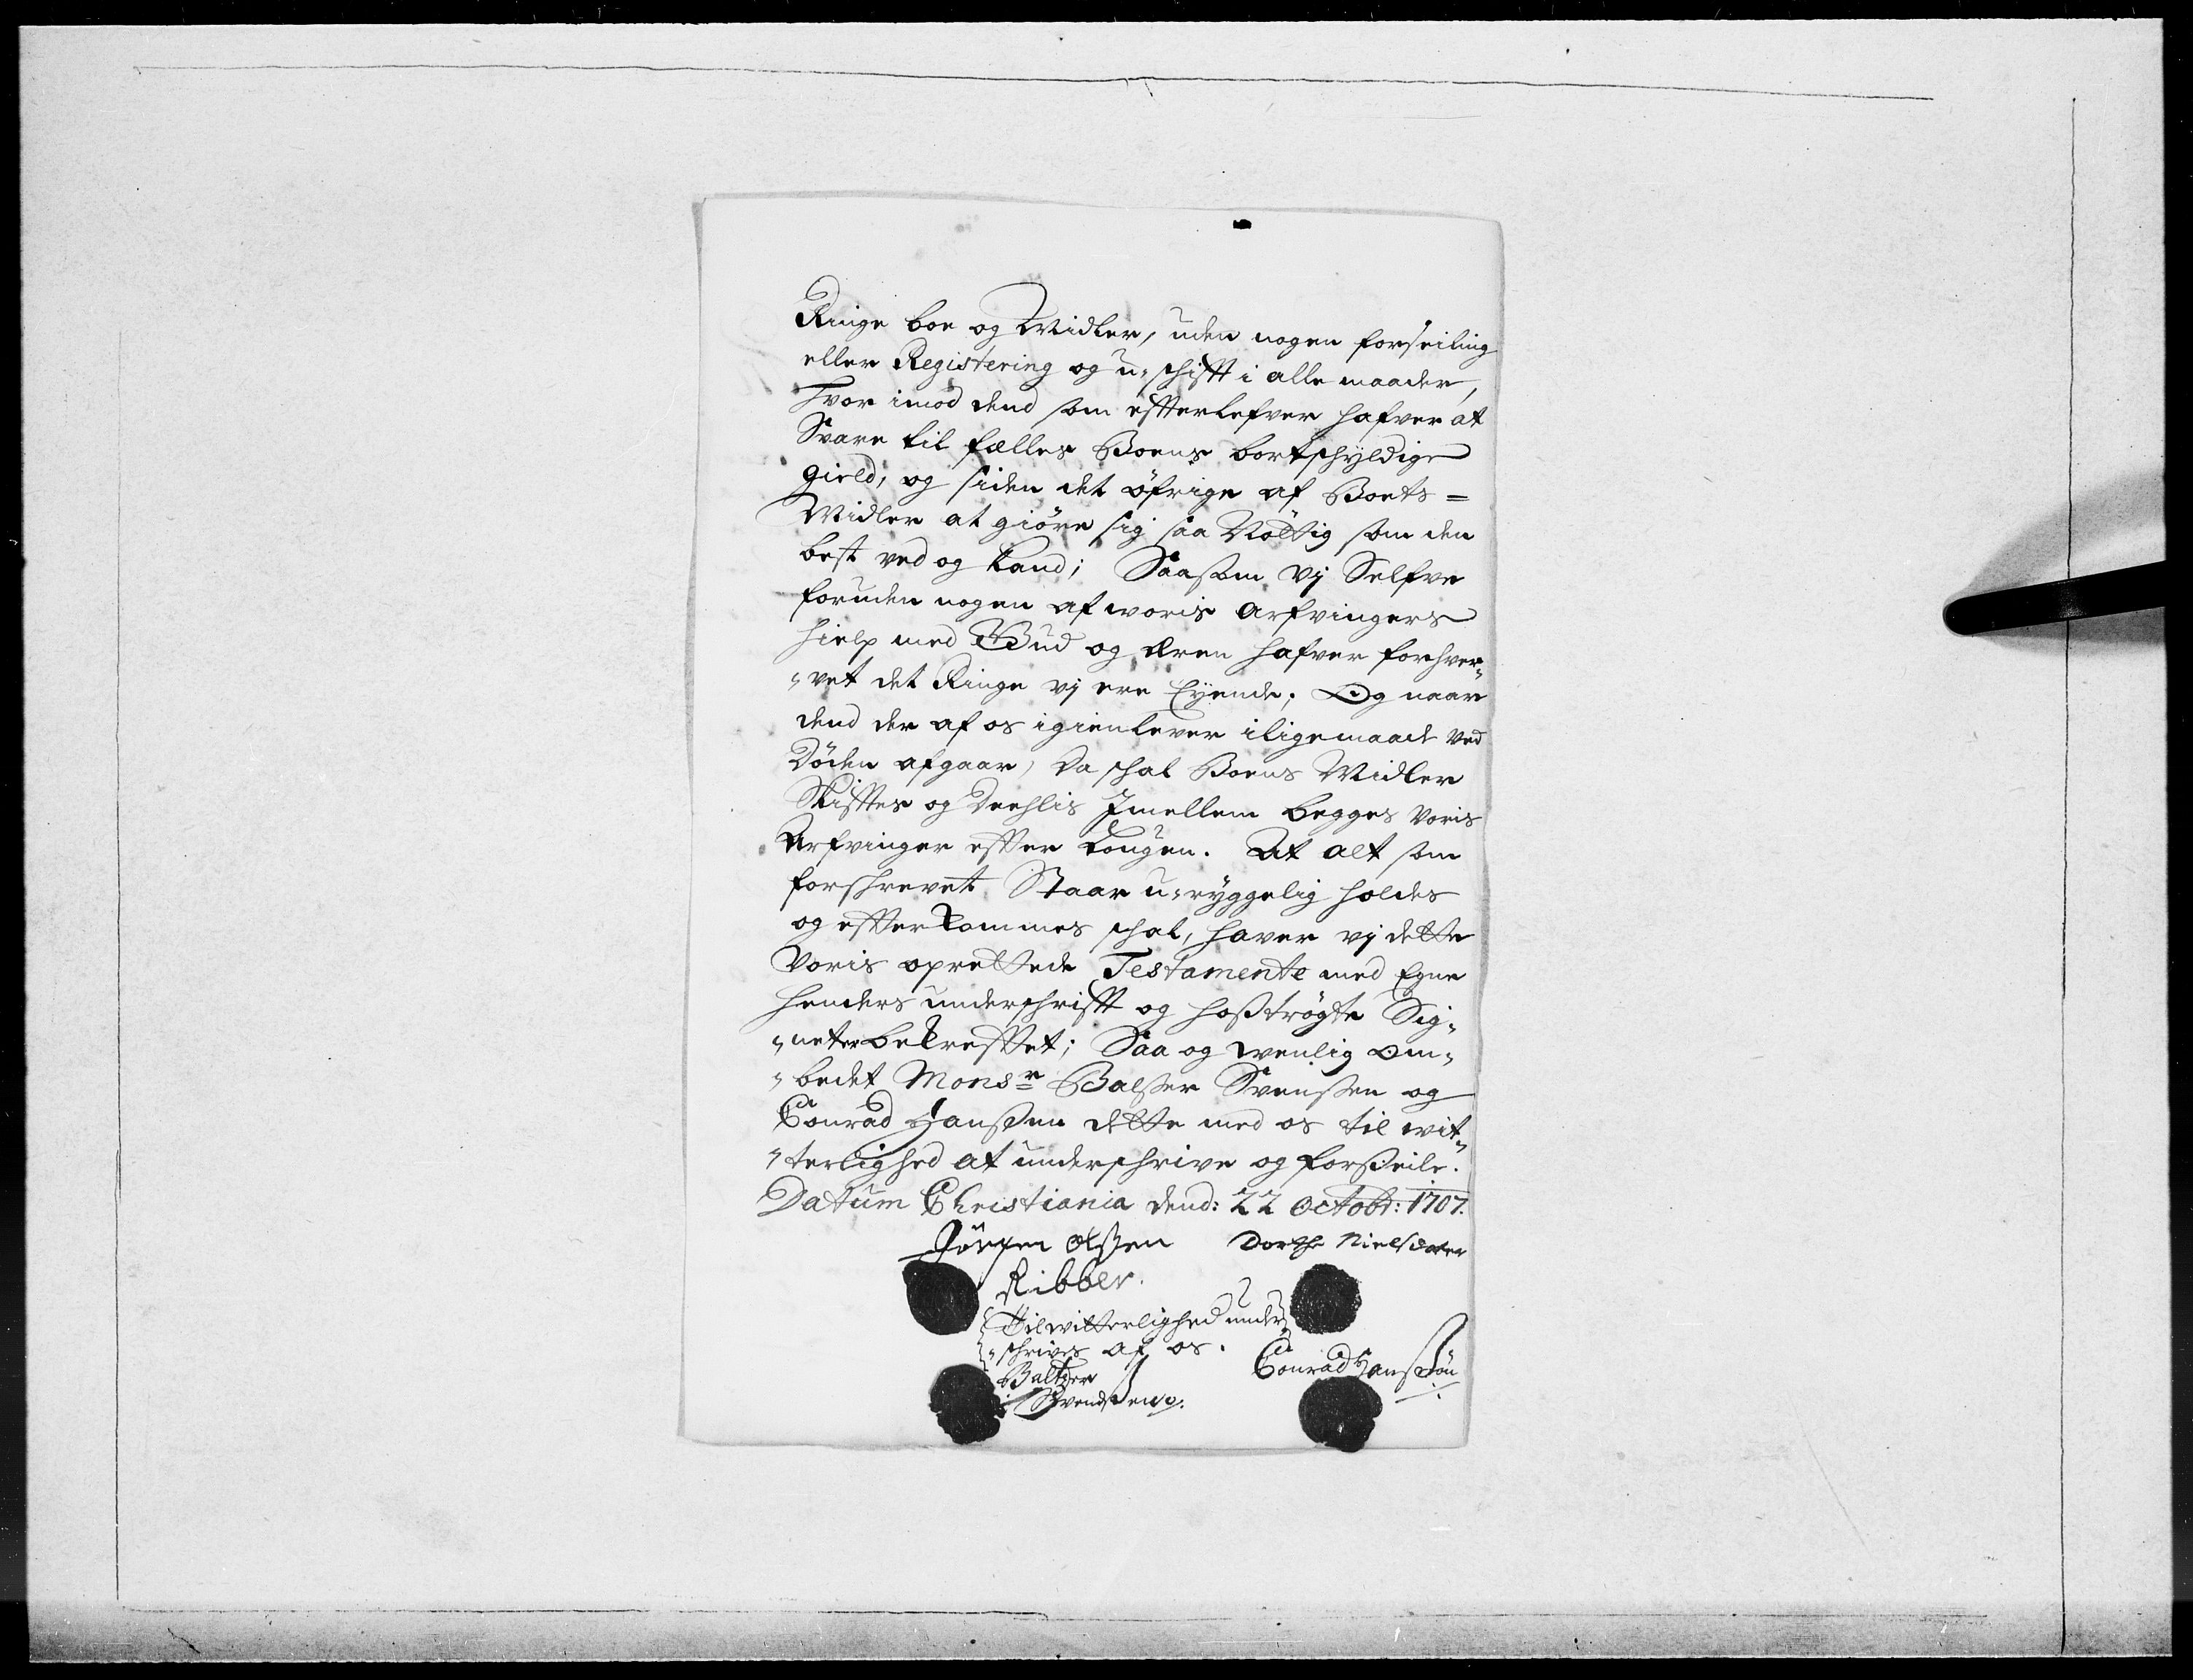 Ringe boe og Midler, uden nogen forseiling
eller Registering og u-schifft i alle maader,
hvor imod dend som effterlefver hafver at
Svare til fælles Boens bortschyldige
gield, og siden det öfrige af Boets =
Midler at giöre sig saa Nöttig som den
best ved og kand; Saasom vj Selfve
foruden nogen af woris arfvingers
hielp med Gud og Æren hafver forhver-
-vet det Ringe vj ere Eyende; Og naar
dend der af os igienlever iligemaade ved
Döden afgaar, da schal Boens Midler
Skifftes og Deehlis Jmellem begges voris
Arfvinger effter Lougen. At alt som
forschrevet Staar u-ryggelig holdes
og effterkommes schal, haver vj dette
Voris oprettede Testamente med Egne
henders underschrifft og hoßtrögte Sig-
-neter bekrefftet; Saa og wenlig om-
-bedet Monsr Balßer Svenßen og
Conrad Hanßen dette med os til wit-
-terlighed at underschrive og forßeile.
Datum Christiania dend: 22 Octobr: 1707.
Jörgen Olßen Dorthe Nielsdater
Ribber.
Til witterlighed under-
-schrives af os.
Baltzer Conrad Hansßön
Svendßen